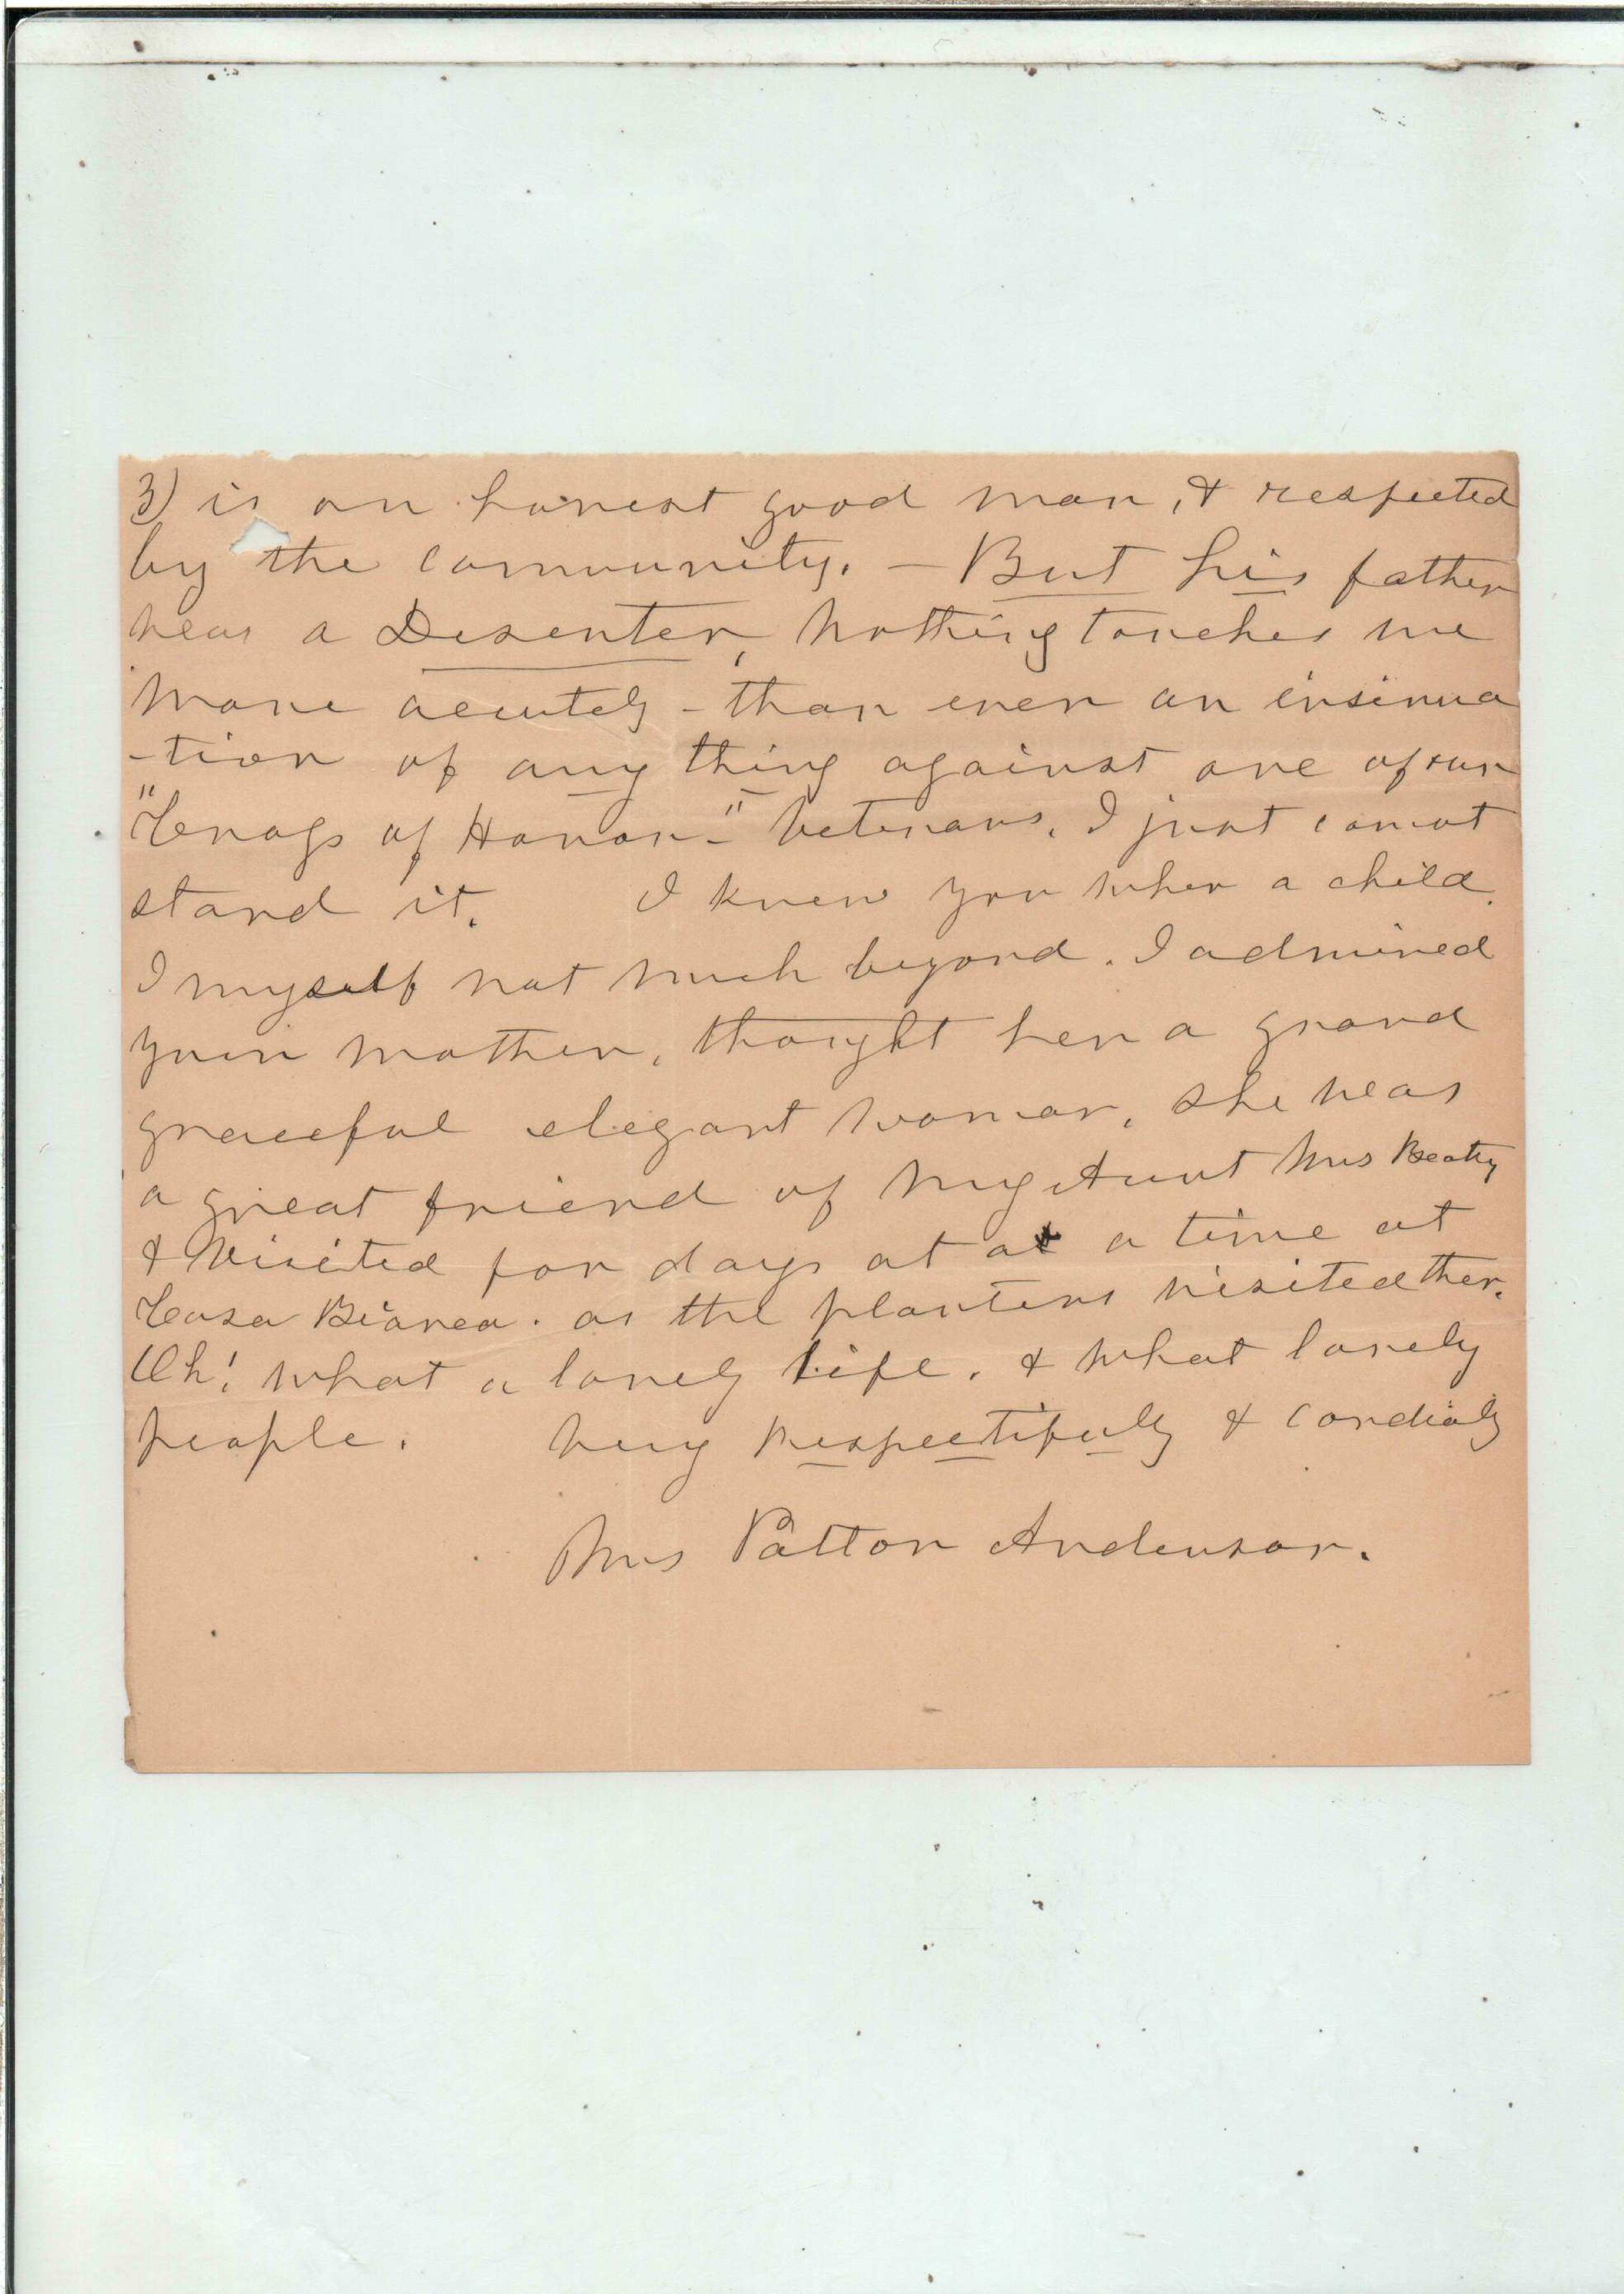 3) is an honest good man, & respected
by the community. — But his father
was a Desenter, Nothing touches me
more acutely - than even an insinua
-tion of any thing against one of our
"Crags of Honor-" Veterans. I just cannot
stand it. I knew you when a child.
I myself not much beyond. I admired
your mother, thought her a grand
graceful elegant woman, She was
a great friend of my Aunt Mrs Beatty
& visited for days at at a time at
Casa Bianca. as the planters visited then.
Oh! what a lovely life. & what lovely
people. Very Respectifuly & Cordialy
Mrs Patton Anderson.